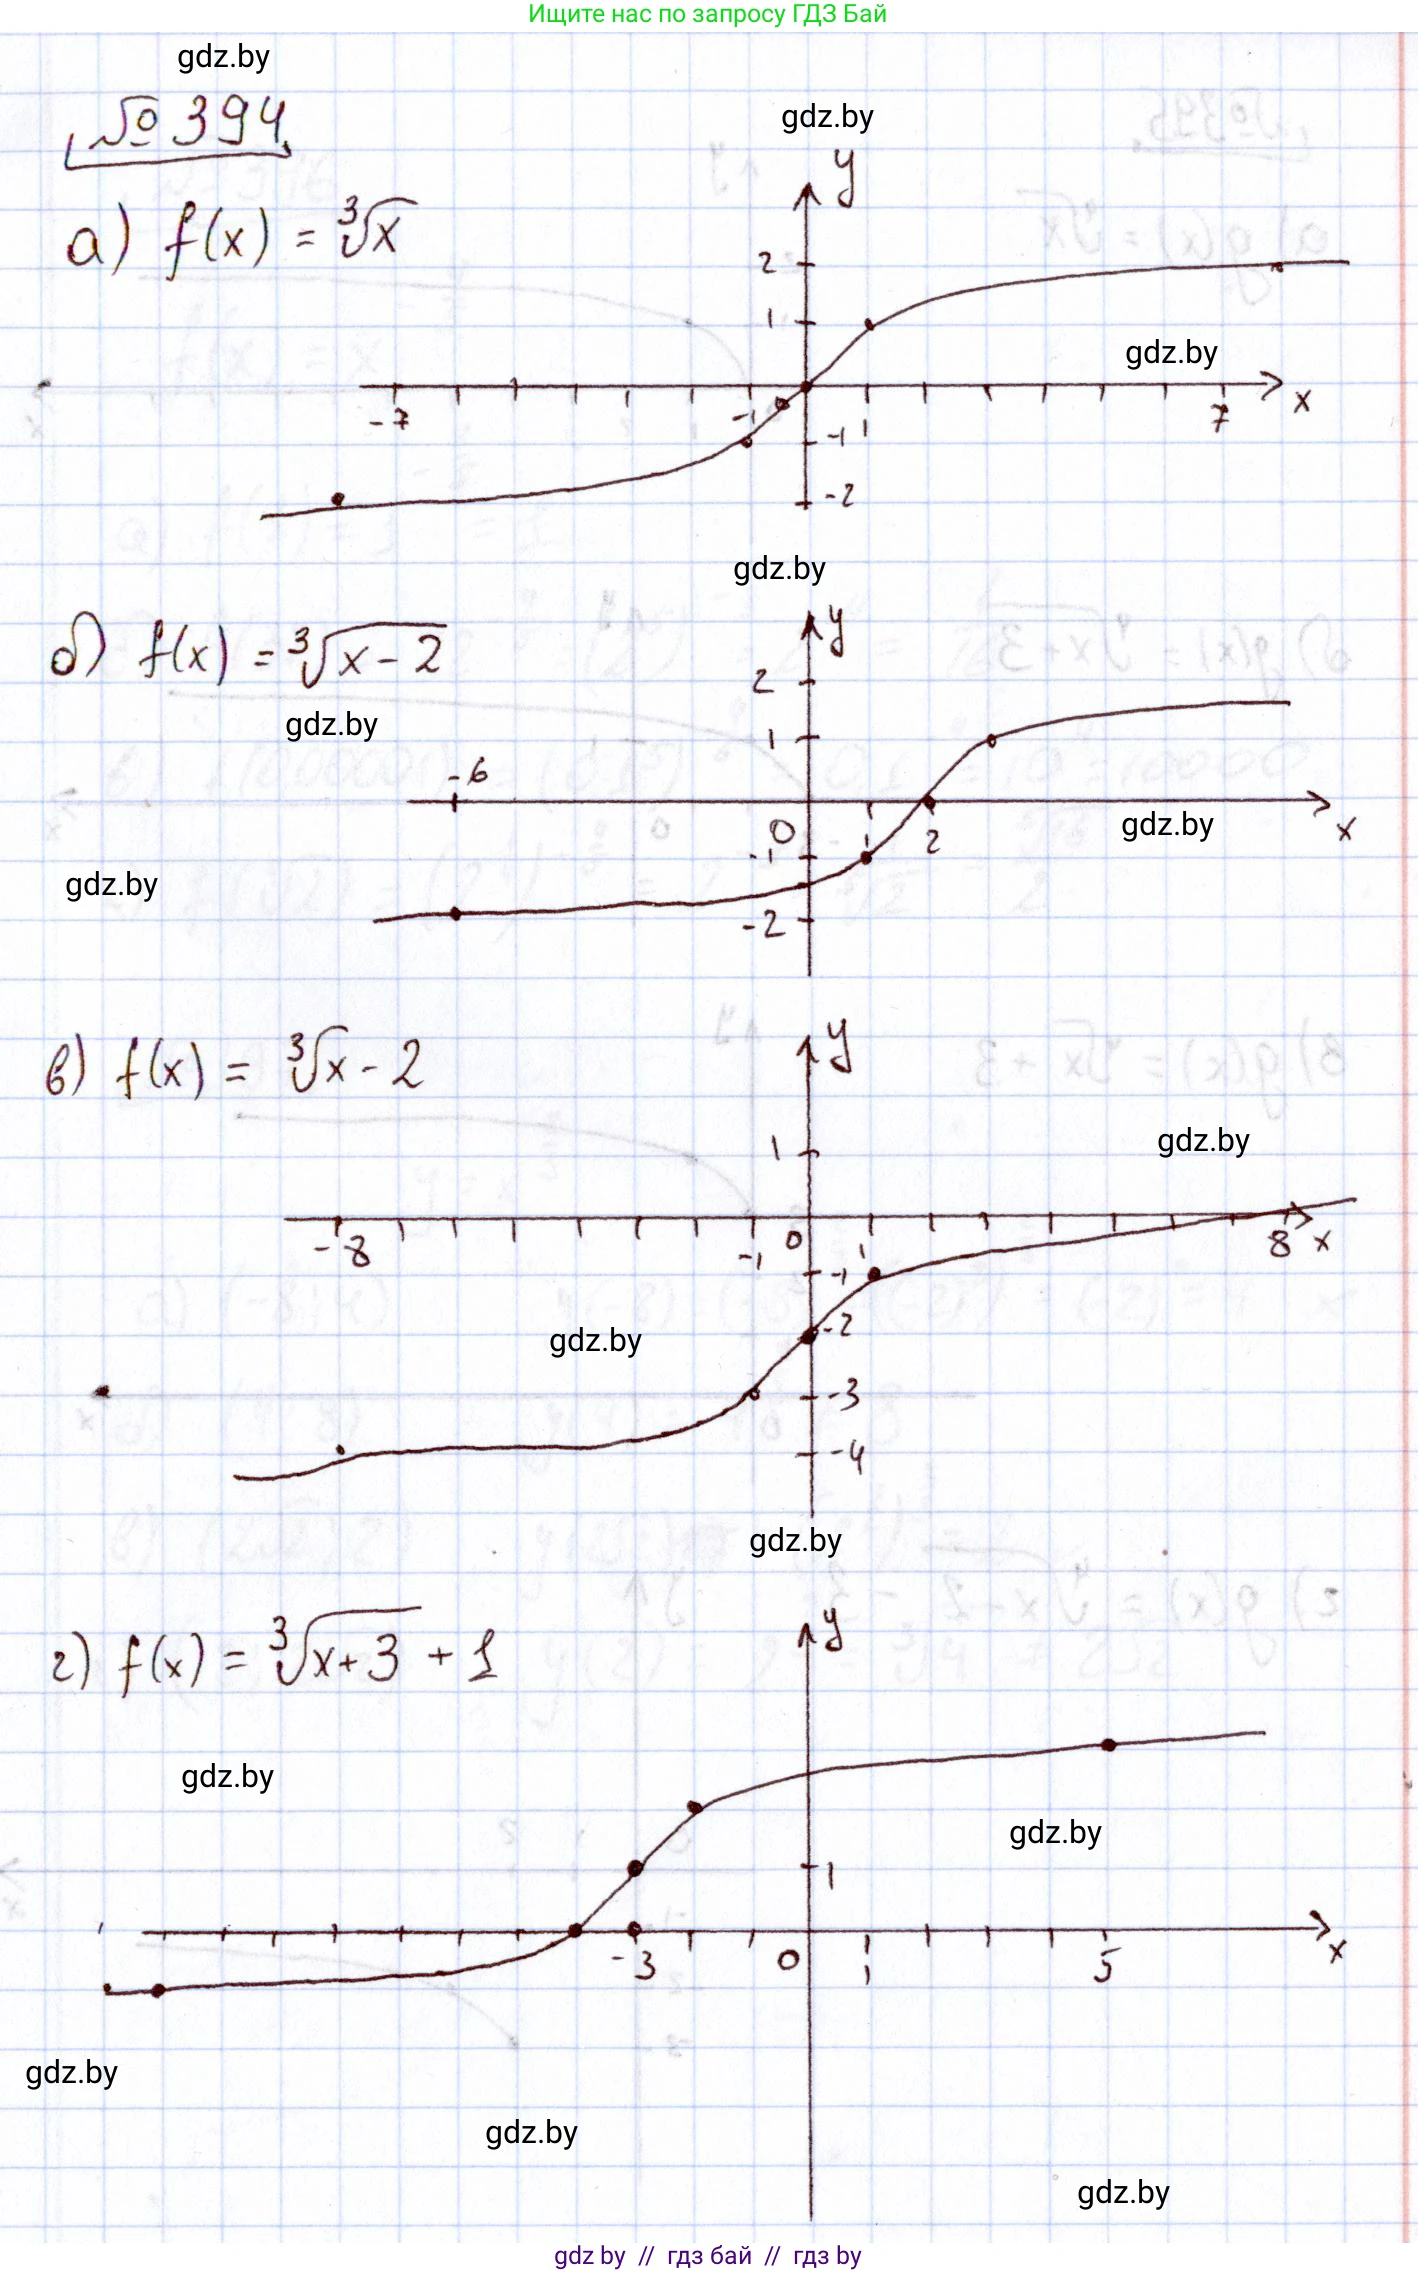 Ищите нас по запросу ГДЗ Бай
gdz.by
№ 394
gdz.by
а) f(x) = ∛x
y
2
1
gdz.by
-7 -1 0 1 7 x
-1
-2
gdz.by
б) f(x) = ∛(x-2)
y
2
gdz.by
1
-6
0 1 2 x
gdz.by
-1
gdz.by
-2
в) f(x) = ∛x - 2
y
1
gdz.by
-8 -1 0 1 8 x
-1
-2
gdz.by
-3
-4
gdz.by
г) f(x) = ∛(x+3) + 1
y
gdz.by
gdz.by
1
-3 0 1 5 x
gdz.by
gdz.by
gdz.by
gdz by // гдз бай // гдз by